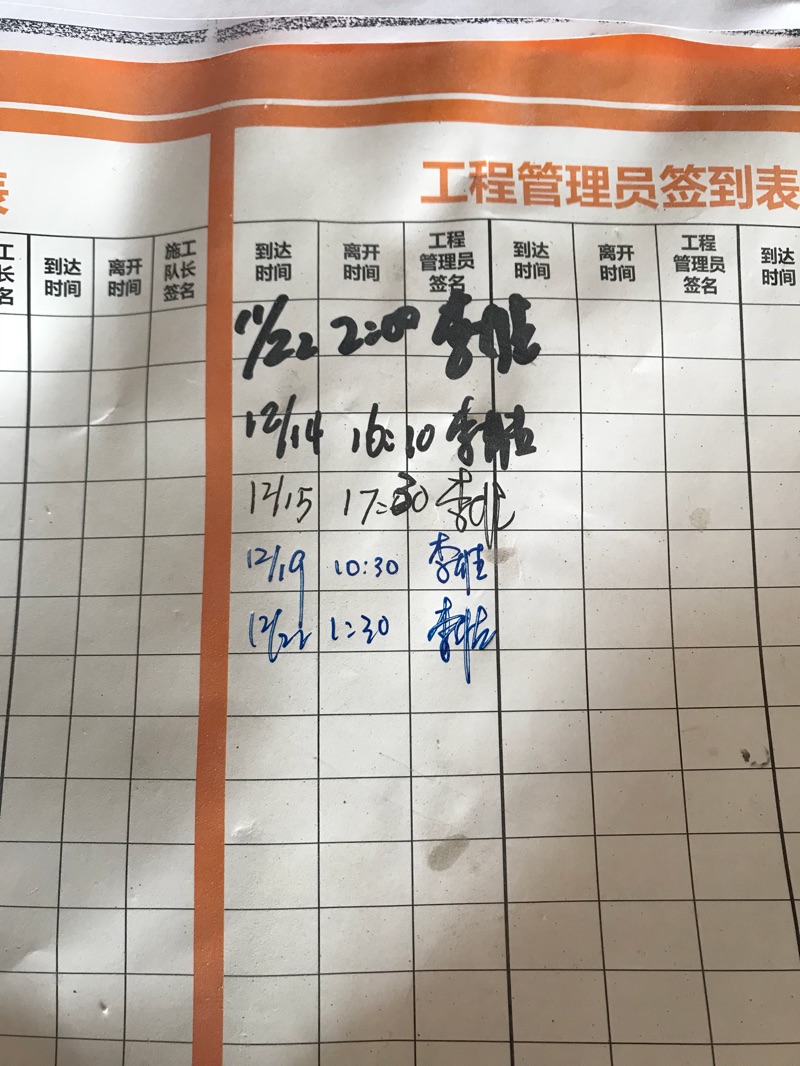 表
工程管理员签到表
工 到达 离开 施工 到达 离开 工程 到达 离开 工程 到达
长 时间 时间 队长 时间 时间 管理员 时间 时间 管理员 时间
名 签名 签名 签名
11/22 2:00 李
12/14 16:10 李
12/15 17:30 李
12/19 10:30 李
12/22 1:30 李